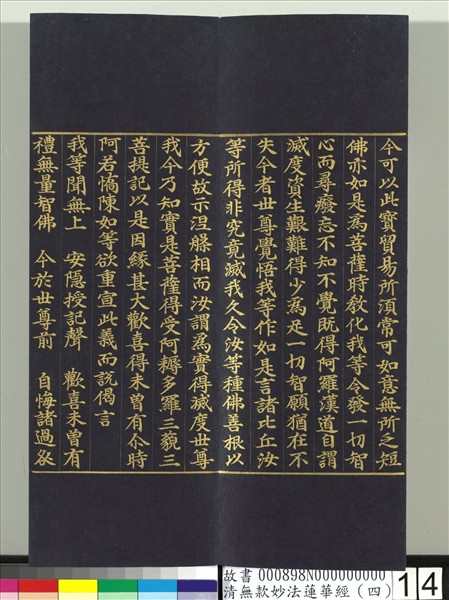 今可以此寶貿易所須常可如意無所乏短
佛亦如是為菩薩時教化我等令發一切智
心而尋癈忘不知不覺既得阿羅漢道自謂
滅度資生艱難得少為足一切智願猶在不
失今者世尊覺悟我等作如是言諸比丘汝
等所得非究竟滅我久令汝等種佛善根以
方便故示涅槃相而汝謂為實得滅度世尊
我今乃知實是菩薩得受阿耨多羅三藐三
菩提記以是因緣甚大歡喜得未曾有尒時
阿若憍陳如等欲重宣此義而說偈言
我等聞無上　安隱授記聲　歡喜未曾有
禮無量智佛　今於世尊前　自悔諸過咎
故書 000898N000000000
清無款妙法蓮華經（四）
14